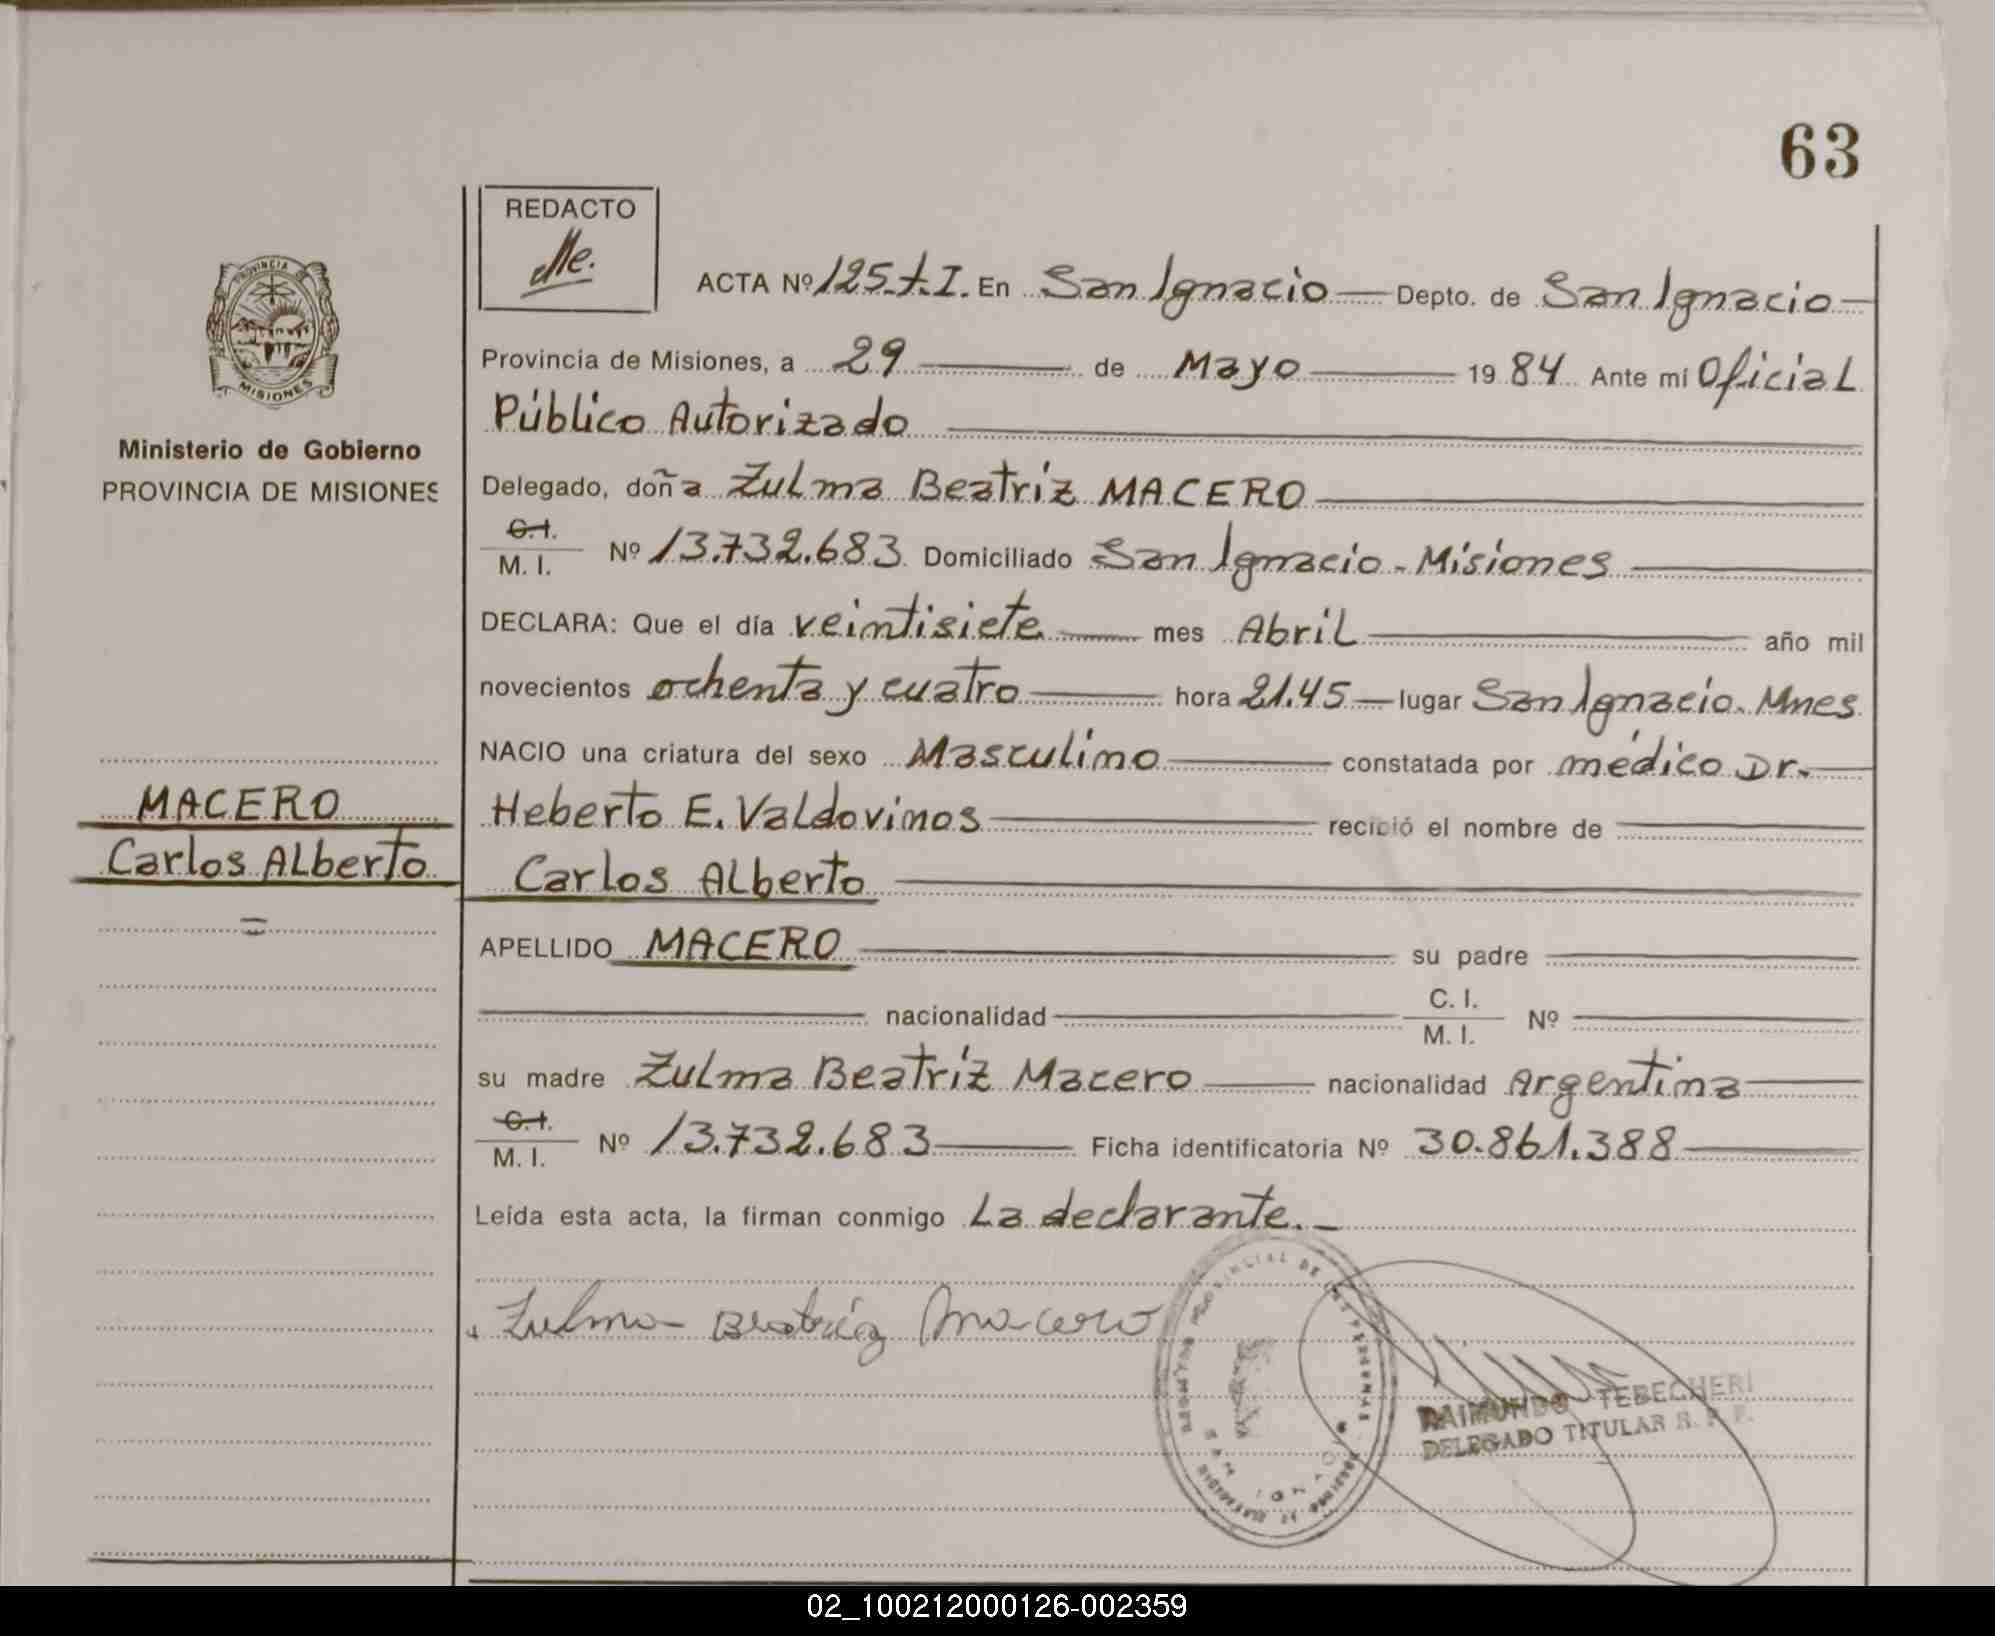 63
REDACTO
Me.
PROVINCIA DE
MISIONES
Ministerio de Gobierno
PROVINCIA DE MISIONES
MACERO
Carlos Alberto
ACTA Nº 125.t.I. En San Ignacio Depto. de San Ignacio
Provincia de Misiones, a 29 de Mayo 1984 Ante mí Oficial
Público Autorizado
Delegado, doña Zulma Beatríz MACERO
C.I.
M. I. Nº 13.732.683 Domiciliado San Ignacio - Misiones
DECLARA: Que el día veintisiete mes Abril año mil
novecientos ochenta y cuatro hora 21.45 lugar San Ignacio. Mnes
NACIO una criatura del sexo Masculino constatada por médico Dr.
Heberto E. Valdovinos recibió el nombre de
Carlos Alberto
APELLIDO MACERO su padre
nacionalidad C. I.
M. I. Nº
su madre Zulma Beatríz Macero nacionalidad Argentina
C.I.
M. I. Nº 13.732.683 Ficha identificatoria Nº 30.861.388
Leída esta acta, la firman conmigo La declarante.
Zulma Beatríz Macero
RAIMUNDO TEBECHERI
DELEGADO TITULAR R. P. P.
02_100212000126-002359